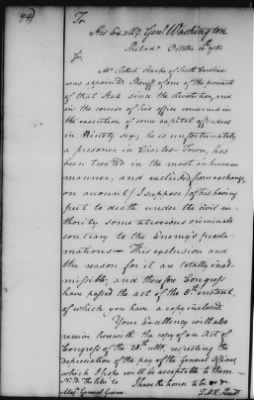 To
His Excelly Genl Washington
Philada October 1780
Sir,
Mr Robert Starke of South Carolina
was appointed Sheriff of one of the precincts
of that State since the devolution, and
in the course of his office concurred in
the execution of some capital offenders
in Ninety six; he is unfortunately
a prisoner in Charles-Town, has
been treated in the most inhuman
manner, and excluded from exchange,
on account (I suppose) of his having
put to death under the civil au-
thority some atrocious criminals
contrary to the Enemy's procla-
mations — This exclusion and
the reason for it are totally inad-
missible; and therefore Congress
have passed the act of the 6th instant,
of which you have a copy inclosed.
Your Excellency will also
receive herewith the copy of an Act of
Congress of the respecting the
depreciation of the pay of the General Officers,
which I hope will be acceptable to them—
N.B. The like to I have the honor to be &c
Majr General Greene